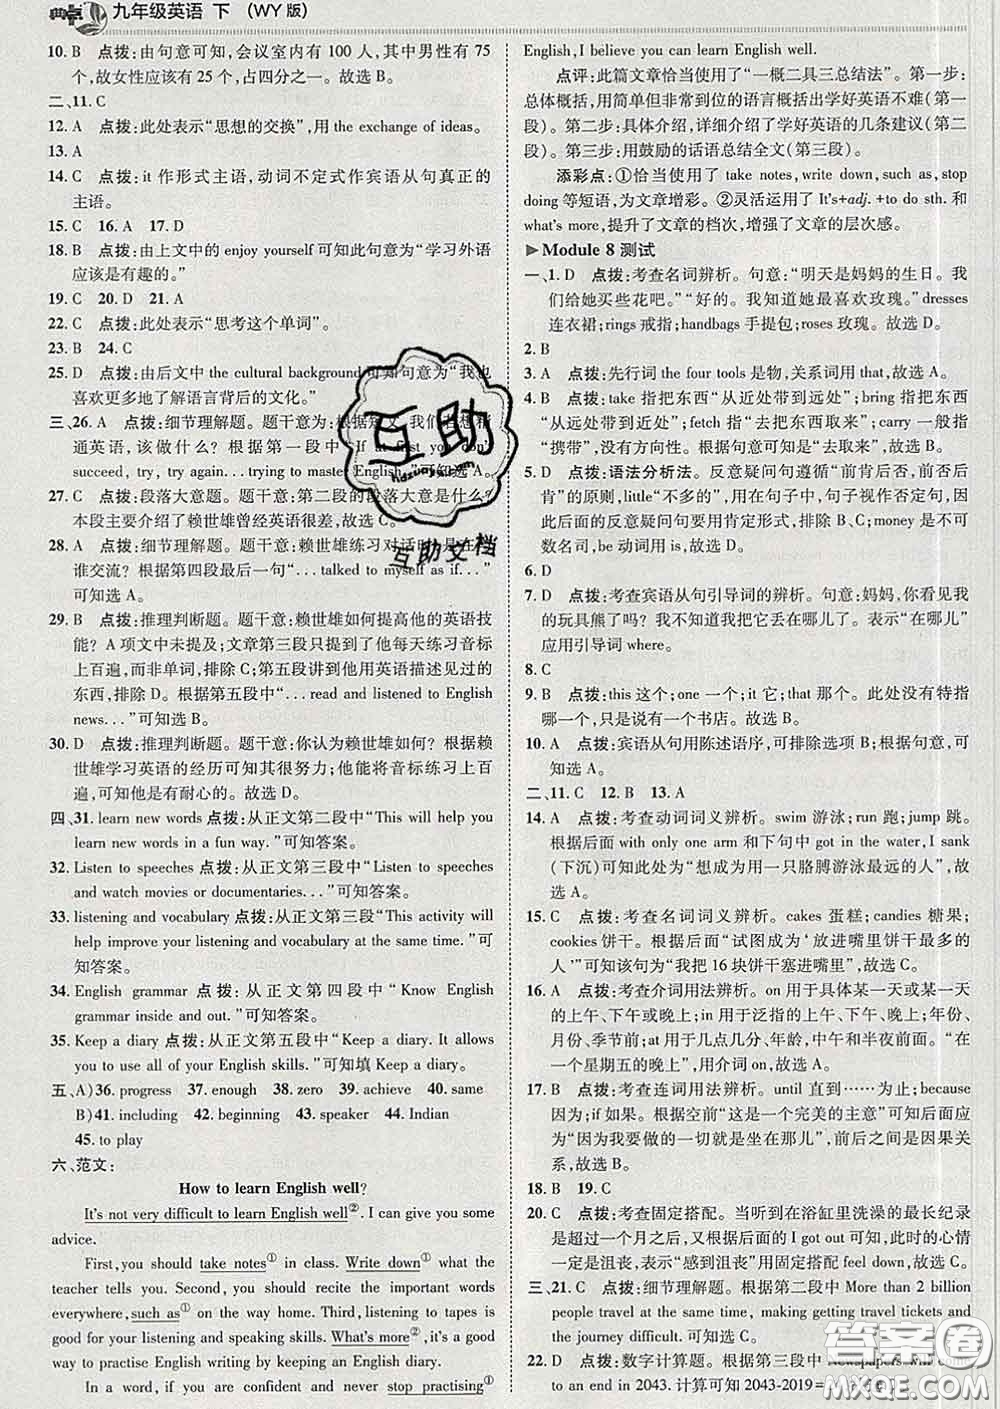 典点 九年级英语 下 (WY版)
10. B 点拨:由句意可知,会议室内有 100 人,其中男性有 75
个,故女性应该有 25 个,占四分之一。故选 B。
二、11. C
12. A 点拨:此处表示“思想的交换”,用 the exchange of ideas。
13. A
14. C 点拨:it 作形式主语,动词不定式作宾语从句真正的
主语。
15. C 16. A 17. D
18. B 点拨:由上文中的 enjoy yourself 可知此句意为“学习外语
应该是有趣的。”
19. C 20. D 21. A
22. C 点拨:此处表示“思考这个单词”。
23. B 24. C
25. D 点拨:由后文中 the cultural background 可知句意为“我也
喜欢更多地了解语言背后的文化。”
三、26. A 点拨:细节理解题。题干意为:根据短文,我们若想精
通英语,该做什么?根据第一段中“If at first you don't
succeed, try, try again. . . trying to master English.”可知选 A。
27. C 点拨:段落大意题。题干意:第二段的段落大意是什么?
本段主要介绍了赖世雄曾经英语很差,故选 C。
28. A 点拨:细节理解题。题干意:赖世雄练习对话时是在和
谁交流?根据第四段最后一句“. . . talked to myself as if. . .”
可知选 A。
29. B 点拨:推理判断题。题干意:赖世雄如何提高他的英语技
能?A 项文中未提及;文章第三段只提到了他每天练习音标
上百遍,而非单词,排除 C;第五段讲到他用英语描述见过的
东西,排除 D。根据第五段中“. . . read and listened to English
news. . .”可知选 B。
30. D 点拨:推理判断题。题干意:你认为赖世雄如何?根据赖
世雄学习英语的经历可知其精神;他能将音标练习上百
遍,可知他是有耐心的。故选 D。
四、31. learn new words 点拨:从正文第二段中“This will help you
learn new words in a fun way.”可知答案。
32. Listen to speeches 点拨:从正文第三段中“Listen to speeches
and watch movies or documentaries. . .”可知答案。
33. listening and vocabulary 点拨:从正文第三段“This activity will
help improve your listening and vocabulary at the same time.”可
知答案。
34. English grammar 点拨:从正文第四段中“Know English
grammar inside and out.”可知答案。
35. Keep a diary 点拨:从正文第五段中“Keep a diary. It allows
you to use all of your English skills.”可知填 Keep a diary。
五、A)36. progress 37. enough 38. zero 39. achieve 40. same
B)41. including 42. beginning 43. speaker 44. Indian
45. to play
六、范文:
How to learn English well?
It's not very difficult to learn English well②. I can give you some
advice.
First, you should take notes① in class. Write down① what the
teacher tells you. Second, you should recite the important words
everywhere, such as① on the way home. Third, listening to tapes is
good for your listening and speaking skills. What's more②, it's a good
way to practise English writing by keeping an English diary.
In a word, if you are confident and never stop practising①
English, I believe you can learn English well.
点评:此篇文章恰当使用了“一概二具三总结法”。第一步:
总体概括,用简单但非常到位的语言概括出学好英语不难(第一
段)。第二步:具体介绍,详细介绍了学好英语的几条建议(第二
段)。第三步:用鼓励的话语总结全文(第三段)。
添彩点:①恰当使用了 take notes, write down, such as, stop
doing 等短语,为文章增彩。②灵活运用了 It's+adj. +to do sth. 和
what's more,提升了文章的档次,增强了文章的层次感。
▶Module 8 测试
一、1. D 点拨:考查名词辨析。句意:“明天是妈妈的生日。我
们给她买些花吧。”“好的。我知道她最喜欢玫瑰。”dresses
连衣裙;rings 戒指;handbags 手提包;roses 玫瑰。故选 D。
2. B
3. A 点拨:先行词 the four tools 是物,关系词用 that。故选 A。
4. B 点拨:take 指把东西“从近处带到远处”;bring 指把东西
“从远处带到近处”;fetch 指“去取来”;carry 一般指
“携带”,没有方向性。根据句意可知是“去取来”,故选 B。
5. D 点拨:语法分析法。反意疑问句遵循“前肯后否,前否后
肯”的原则,little“不多的”,用在句子中,句子视作否定形式,
因此后面的反意疑问句要用肯定形式,排除 B、C;money 是不可
数名词,be 动词用 is。故选 D。
6. D
7. D 点拨:考查宾语从句引导词的辨析。句意:妈妈,你看见我
的玩具熊了吗?我不知道我把它丢在哪儿了。表示“在哪儿”
应用引导词 where。
8. C
9. B 点拨:this 这个;one 一个;it 它;that 那个。此处没有特指
哪一个,只是说有一个书店。故选 B。
10. A 点拨:宾语从句用陈述语序,可排除选项 B;根据句意,可
知选 A。
二、11. C 12. B 13. A
14. A 点拨:考查动词词义辨析。swim 游泳;run 跑;jump 跳。
根据 with only one arm 和下句中 got in the water, I sank
(下沉)可知此处为“想成为一只胳膊游泳最远的人”。故
选 A。
15. C 点拨:考查名词词义辨析。cakes 蛋糕;candies 糖果;
cookies 饼干。根据后面“试图成为‘放进嘴里饼干最多的
人’”可知该句为“我把 16 块饼干塞进嘴里”,故选 C。
16. A 点拨:考查介词用法辨析。on 用于具体某一天或某一天
的上午、下午、晚上;in 用于泛指的上午、下午、晚上;年份、
月份、季节前;at 用于几点几分、年龄,中午和半夜前面。“在
一个星期五的晚上”,用介词 on,故选 A。
17. B 点拨:考查连词用法辨析。until 直到……为止;because
因为;if 如果。根据空前“这是一个完美的主意”可知后面应
为“因为我要做的一切就是坐在那儿”,前后两句是因果关
系,故选 B。
18. B 19. C
20. C 点拨:考查固定搭配。当听到在浴缸里洗澡的最长纪录
是超过一个月之后,又根据后面的 I got out 可知,此时的心情
一定是沮丧,表示“感到沮丧”应用固定搭配 feel down,故选 C。
三、21. C 点拨:细节理解题。根据第二段中 More than 2 billion
people travel at the same time, making getting travel tickets and
the journey difficult. 可知选 C。
22. D 点拨:数字计算题。根据第三段中 Newspapers will come
to an end in 2043. 计算可知 2043-2019=
互助
huzuowen.com
互助文档
答案圈